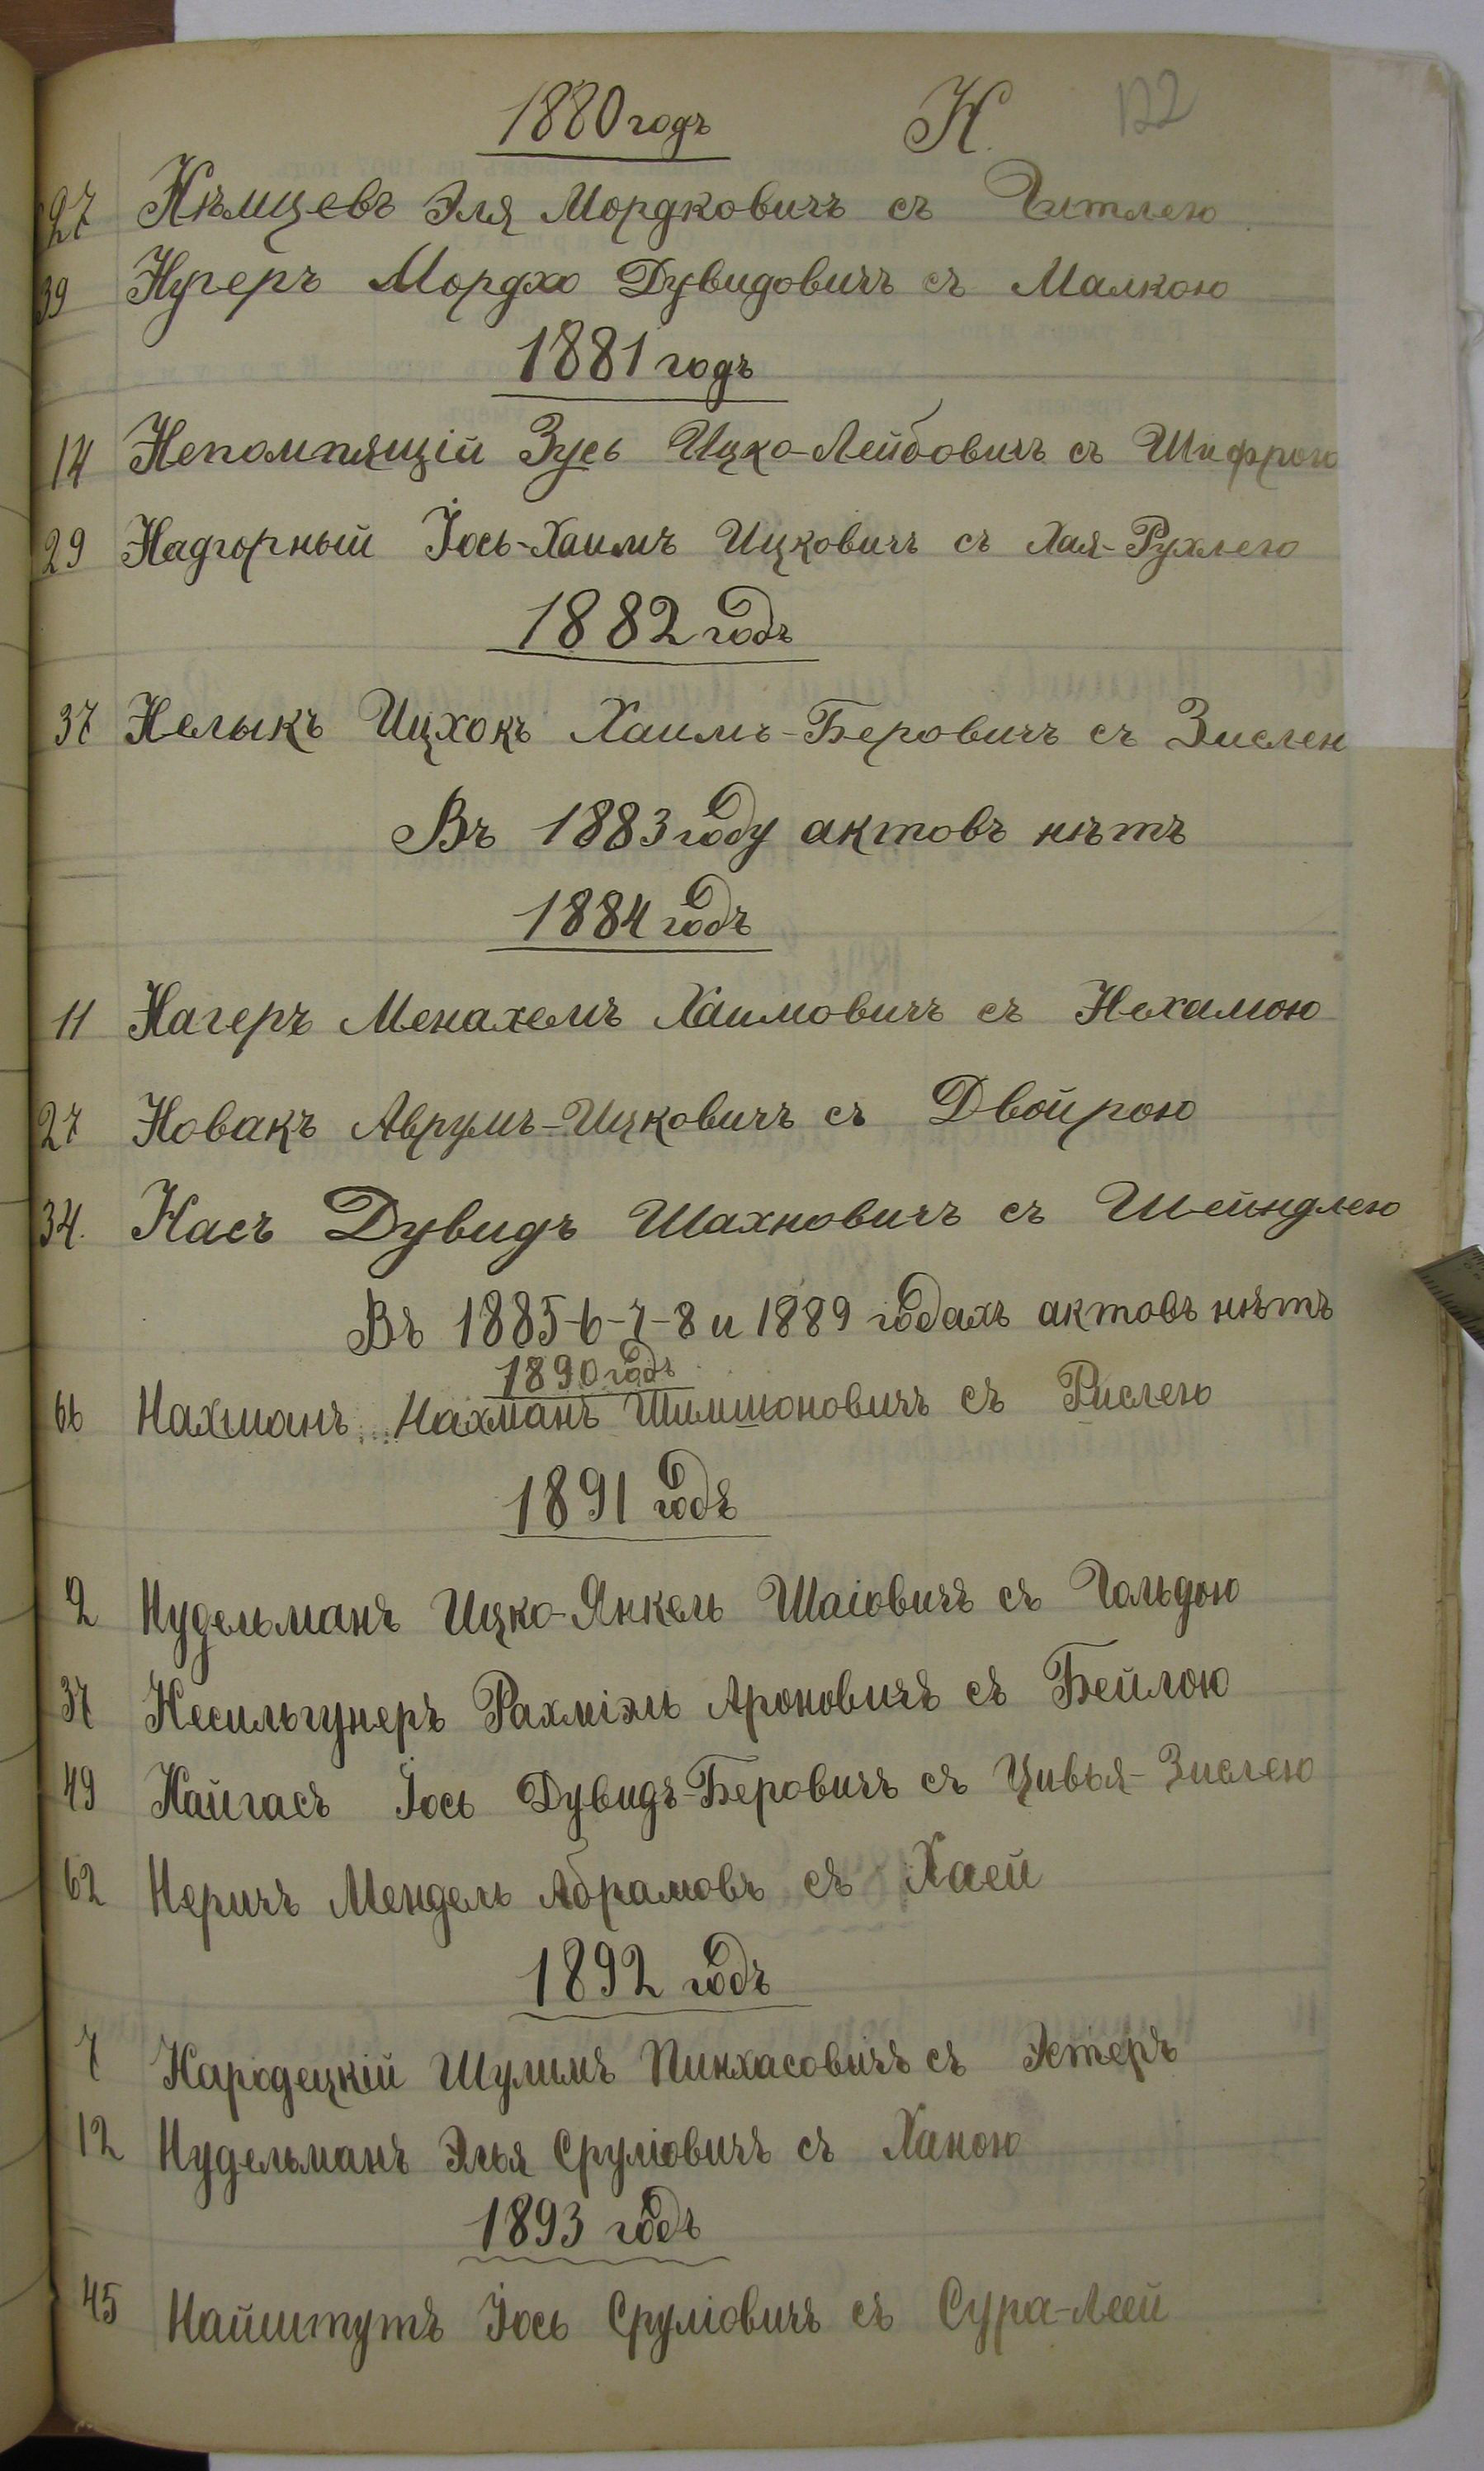 1880 годъ Н. 122
27 Нѣмцевъ Эля Мордковичъ съ Гитлею
39 Нугеръ Мордхо Дувидовичъ съ Малкою
1881 годъ
14 Непомнящій Зусь Ицко-Лейбовичъ съ Шифрою
29 Надгорный Іось-Хаимъ Ицковичъ съ Хая-Рухлею
1882 годъ
37 Нелыкъ Ицхокъ Хаимъ-Беровичъ съ Зислею
Въ 1883 году актовъ нѣтъ
1884 годъ
11 Нагеръ Менахемъ Хаимовичъ съ Нехамою
27 Новакъ Аврумъ-Ицковичъ съ Двойрою
34. Насъ Дувидъ Шахновичъ съ Шейндлею
Въ 1885-6-7-8 и 1889 годахъ актовъ нѣтъ
1890 годъ
66 Нахманъ Нахманъ Шимшоновичъ съ Рислею
1891 годъ
2 Нудельманъ Ицко-Янкель Шаіовичъ съ Гольдою
37 Несильгунеръ Рахміэль Ароновичъ съ Бейлою
49 Найгасъ Іось Дувидъ-Беровичъ съ Цивья-Зислею
62 Неричъ Мендель Абрамовъ съ Хаей
1892 годъ
7 Народецкій Шулимъ Пинхасовичъ съ Эстеръ
12 Нудельманъ Элья Сруліовичъ съ Ханою
1893 годъ
45 Найштутъ Іось Сруліовичъ съ Сура-Леей